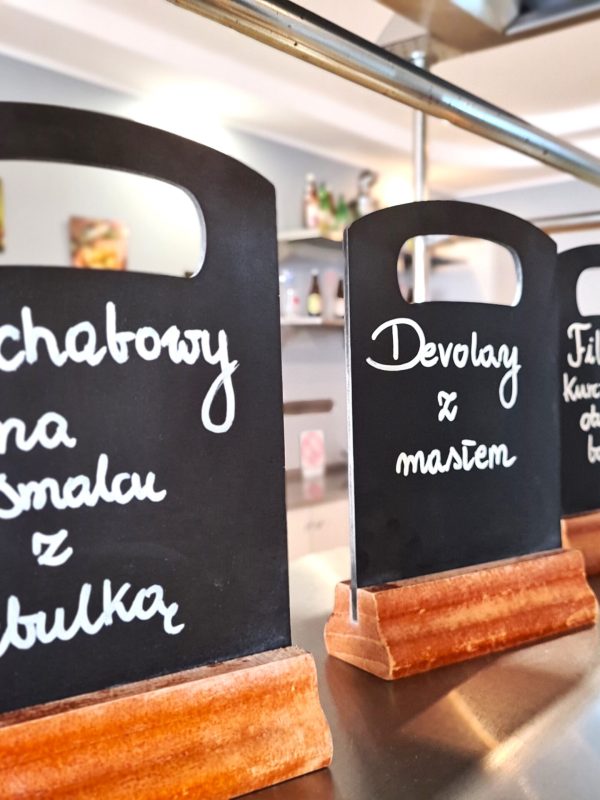 chabowy
na
smalcu
z
bulką
Devolay
z
masłem
Fil
Kurc